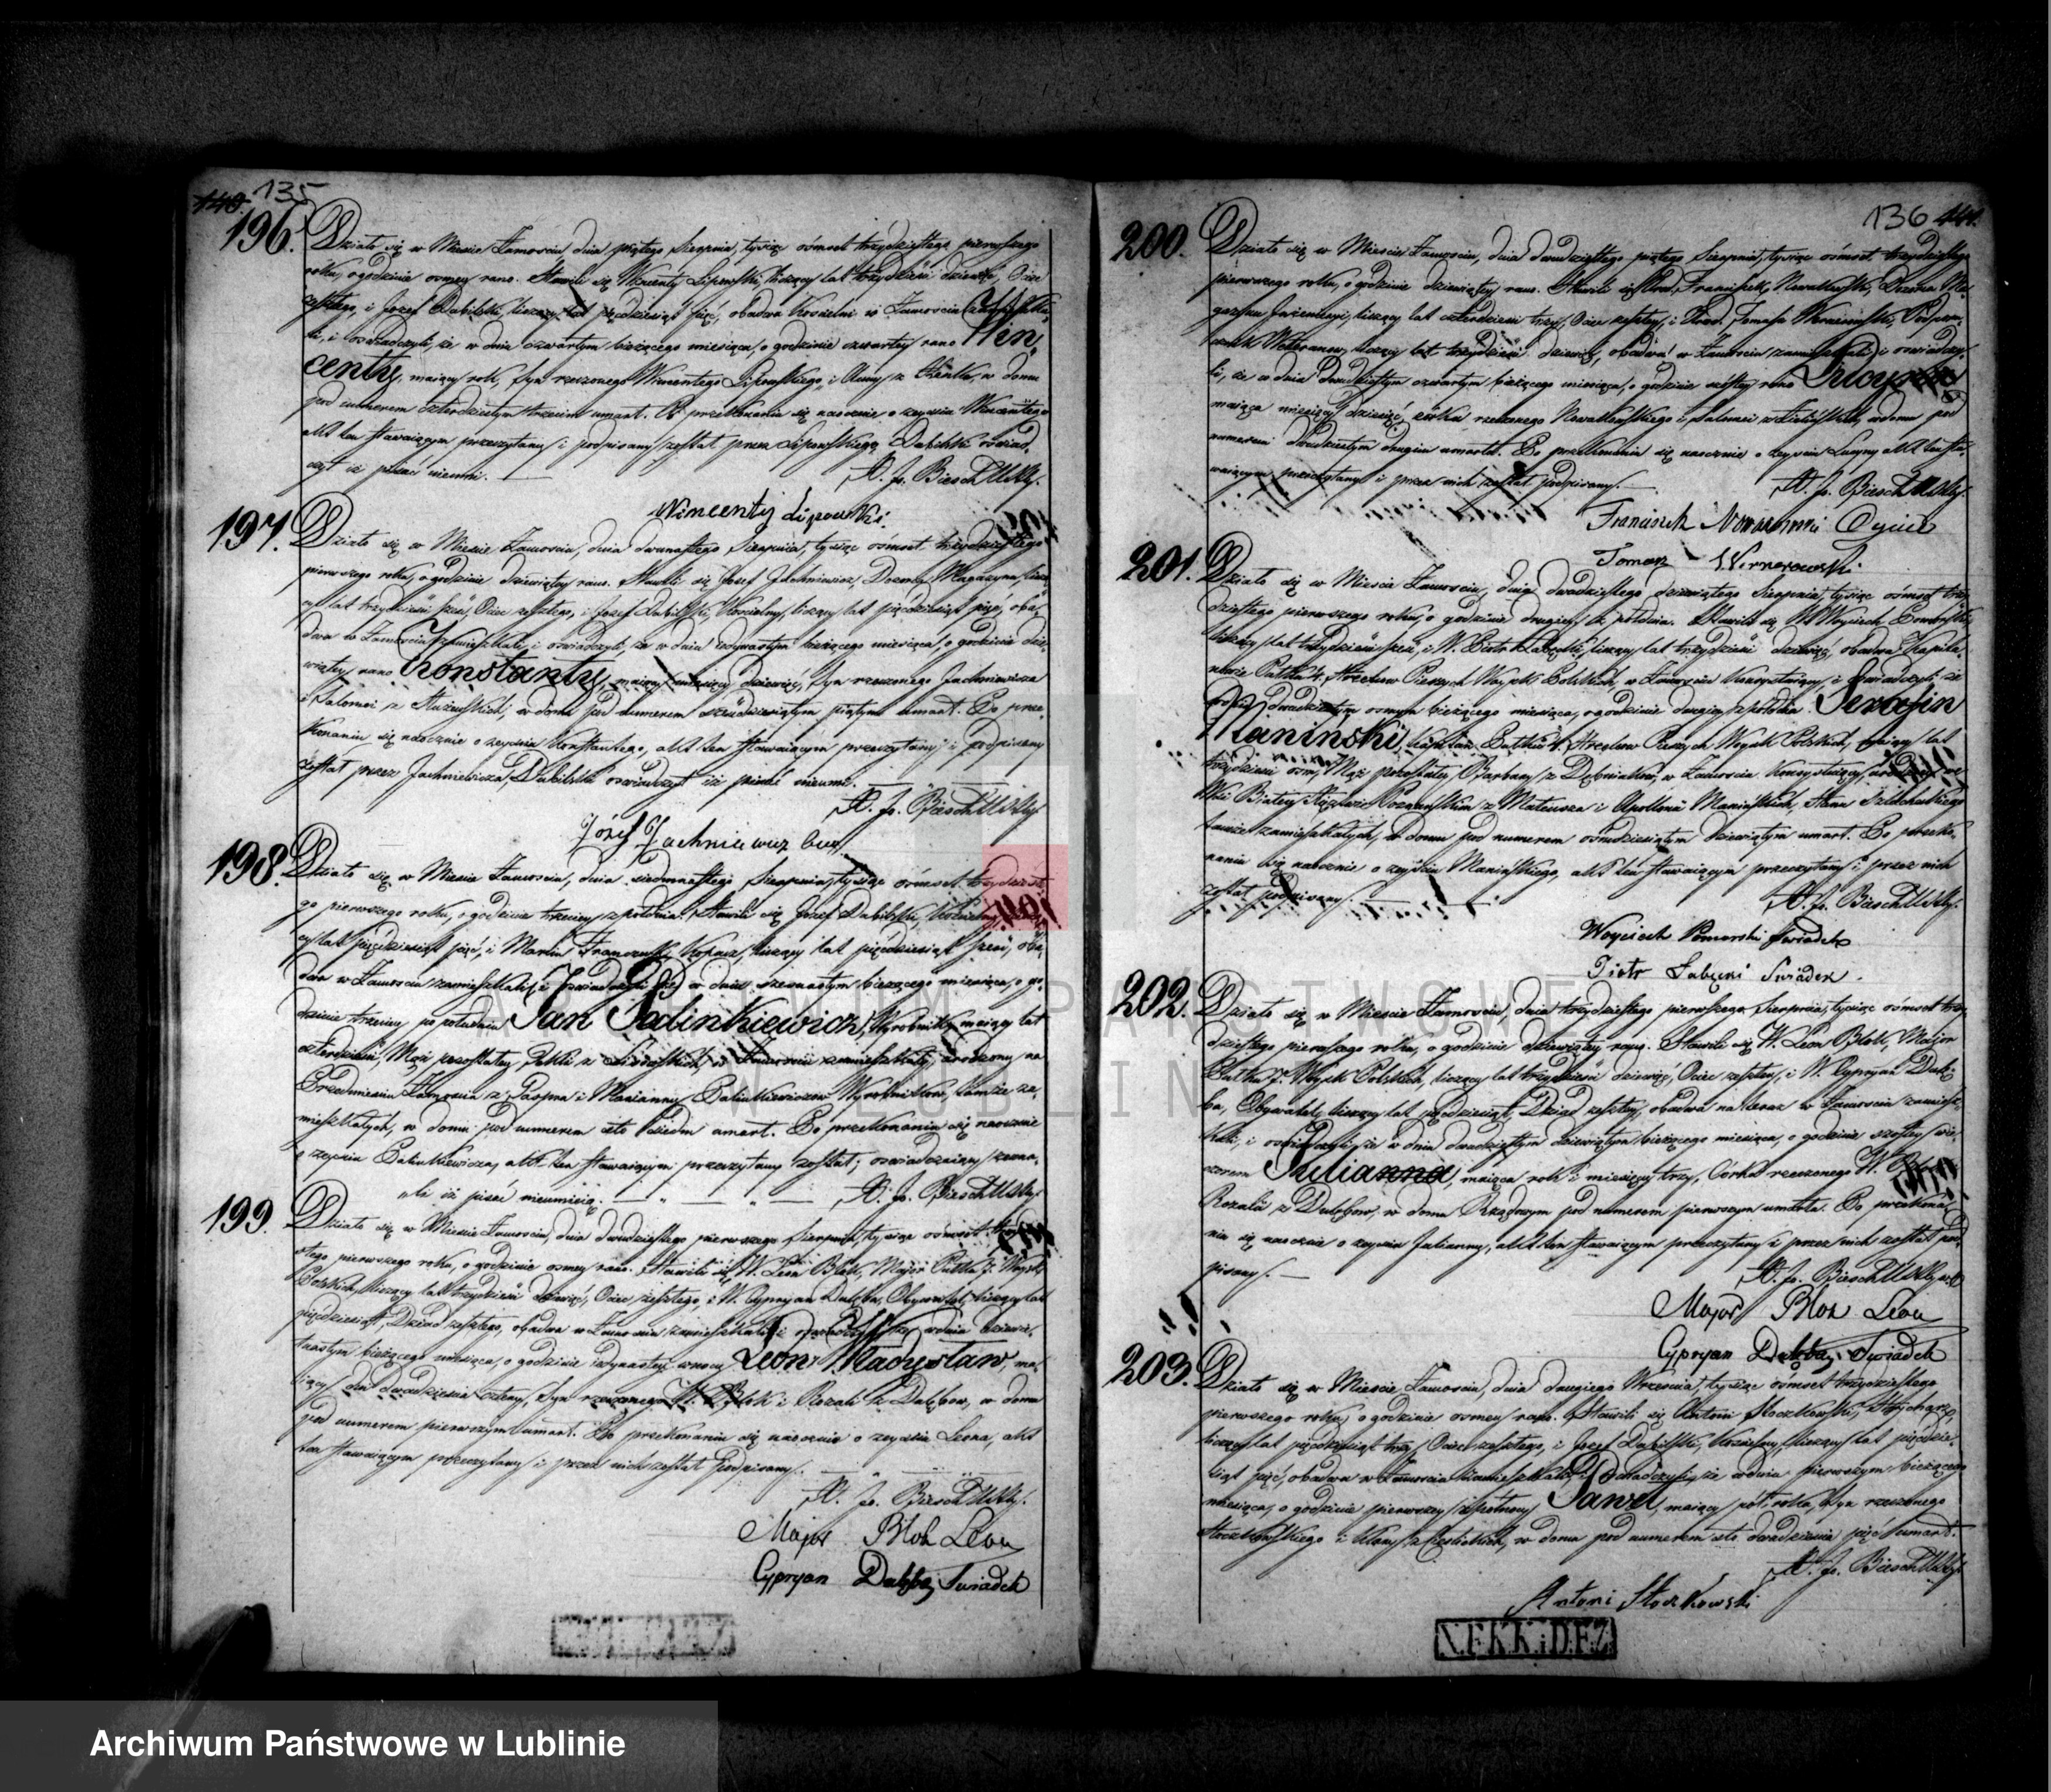 140. 135
196. Działo się w Mieście Zamościu dnia piątego Sierpnia, tysiąc ośmset trzydziestego pierwszego
roku, o godzinie osmey rano. Stawili się Wincenty Lipowski, liczący lat trzydzieści dziewięć, Ociec
zeszłego, i Jozef Dubilski, liczący lat pięćdziesiąt pięć, obadwa Kościelni w Zamościu zamieszka-
li, i oświadczyli, że w dniu czwartym bieżącego miesiąca, o godzinie czwartey rano Win-
centy, maiący rok, Syn rzeczonego Wincentego Lipowskiego, i Anny z, w domu
pod numerem czterdziestym trzecim umarł. Po przekonaniu się naocznie o zeyściu Wincentego
akt ten stawaiącym przeczytany i podpisany został przez Lipowskiego, Dubilski oświad-
czył iż pisać nieumi.
X. Jo.
Wincenty Lipowski.
197. Działo się w Mieście Zamościu, dnia dwunastego Sierpnia, tysiąc ośmset trzydziestego
pierwszego roku, o godzinie dziewiątey rano. Stawili się Jozef Jachniewicz, Dozorca Magazynu, liczą-
cy lat trzydzieści sześć, Ociec zeszłego, i Jozef Dubilski, Kościelny, liczący lat pięćdziesiąt pięć, oba-
dwa w Zamościu zamieszkali, i oświadczyli, że w dniu iedynastym bieżącego miesiąca, o godzinie dzie-
wiątey rano Konstanty, maiący miesięcy dziewięć, Syn rzeczonego Jachniewicza
i Salomei z, w domu pod numerem piątym umarł. Po prze-
konaniu się naocznie o zeyściu Konstantego, akt ten stawaiącym przeczytany i podpisany
został przez Jachniewicza, Dubilski oświadczył iż pisać nieumi.
X. Jo.
Józef Jachniewicz
198. Działo się w Mieście Zamościu, dnia siedmnastego Sierpnia, tysiąc ośmset trzydzieste-
go pierwszego roku, o godzinie trzeciey z południa. Stawili się Jozef Dubilski, Kościelny,
cy lat pięćdziesiąt pięć, i Marcin, Kopacz, liczący lat pięćdziesiąt sześć, oba-
dwa w Zamościu zamieszkali, i oświadczyli, że w dniu szesnastym bieżącego miesiąca, o go-
dzinie trzeciey po południu Jan Palinkiewicz, Wyrobnik, maiący lat
czterdzieści, Mąż pozostałey Tekli z, w Zamościu zamieszkały, urodzony na
Przedmieściu Zamościa z Kaspra i Marianny Palinkiewiczów Wyrobników, tamże za-
mieszkałych, w domu pod numerem sto siedm umarł. Po przekonaniu się naocznie
o zeyściu Palinkiewicza, akt ten stawaiącym przeczytany został; oświadczaiący zezna-
li iż pisać nieumieią.
X. Jo.
199. Działo się w Mieście Zamościu, dnia dwudziestego pierwszego Sierpnia, tysiąc ośmset
stego pierwszego roku, o godzinie osmey rano. Stawili się W. Leon Błok, Major Pułku 7. Woysk
Polskich, liczący lat trzydzieści dziewięć, Ociec zeszłego, i W. Cypryan Dulęba, Obywatel, liczący lat
pięćdziesiąt, Dziad zeszłego, obadwa w Zamościu zamieszkali, i oświadczyli, że w dniu dziewię-
tnastym bieżącego miesiąca, o godzinie iedynastey w nocy Leon Władysław, ma-
iący dni dwadzieścia cztery, Syn rzeczonego W. Błok i Rozalii z Dulębow, w domu
pod numerem pierwszym umarł. Po przekonaniu się naocznie o zeyściu Leona, akt
ten stawaiącym przeczytany i przez nich został podpisany.
X. Jo.
Major Błok Leon
Cypryan Dulęba, Swiadek
136 141.
200. Działo się w Mieście Zamościu, dnia dwudziestego piątego Sierpnia, tysiąc ośmset trzydziestego
pierwszego roku, o godzinie dziewiątey rano. Stawili się Franciszek Nowakowski, Dozorca Ma-
gazynu, liczący lat czterdzieści trzy, Ociec zeszłey, i Tomasz,
liczący lat trzydzieści dziewięć, obadwa w Zamościu zamieszkali, i oświadczy-
li, że w dniu dwudziestym czwartym bieżącego miesiąca, o godzinie szóstey rano Lucyna
maiąca miesięcy dziesięć, córka rzeczonego Nowakowskiego i Salomei, w domu pod
numerem dwudziestym drugim umarła. Po przekonaniu się naocznie o zeyściu Lucyny akt ten sta-
waiącym przeczytany i przez nich został podpisany.
X. Jo.
Franciszek Nowakowski Oyciec
Tomasz
201. Działo się w Mieście Zamościu, dnia dwudziestego dziewiątego Sierpnia, tysiąc ośmset trzy-
dziestego pierwszego roku, o godzinie drugiey z południa. Stawili się W. Woyciech Pomorski,
liczący lat trzydzieści sześć, i W. Piotr Łabęcki, liczący lat trzydzieści dziewięć, obadwa Kapita-
nowie Pułku 4. Strzelców Pieszych Woysk Polskich, w Zamościu konsystuiący, i oświadczyli, że
w dniu dwudziestym osmym bieżącego miesiąca, o godzinie drugiey z południa Serafin
Maninski, Kapitan Pułku 4. Strzelców Pieszych Woysk Polskich, maiący lat
trzydzieści osm, Mąż pozostałey Barbary z, w Zamościu konsystuiący, urodzony we
Wsi Białey, Xięztwie Poznańskim z Mateusza i Apolloni Maninskich, Stanu Szlacheckiego
tamże zamieszkałych, w domu pod numerem ośmdziesiątym dziewiątym umarł. Po przeko-
naniu się naocznie o zeyściu Maninskiego, akt ten stawaiącym przeczytany i przez nich
został podpisany.
X. Jo.
Woyciech Pomorski Swiadek
Piotr Łabęcki Swiadek.
202. Działo się w Mieście Zamościu, dnia trzydziestego pierwszego Sierpnia, tysiąc ośmset trzy-
dziestego pierwszego roku, o godzinie dziewiątey rano. Stawili się W. Leon Błok, Major
Pułku 7. Woysk Polskich, liczący lat trzydzieści dziewięć, Ociec zeszłey, i W. Cypryan Dulę-
ba, Obywatel, liczący lat pięćdziesiąt, Dziad zeszłey, obadwa na teraz w Zamościu zamiesz-
kali, i oświadczyli, że w dniu dwudziestym dziewiątym bieżącego miesiąca, o godzinie szostey wie-
czorem Julianna, maiąca rok i miesięcy trzy, Córka rzeczonego W.
Rozalii z Dulębow, w domu Rządowym pod numerem pierwszym umarła. Po przekona-
niu się naocznie o zeyściu Julianny, akt ten stawaiącym przeczytany i przez nich został pod-
pisany.
X. Jo.
Major Błok Leon
Cypryan Dulęba, Swiadek
203. Działo się w Mieście Zamościu, dnia drugiego Września, tysiąc ośmset trzydziestego
pierwszego roku, o godzinie osmey rano. Stawili się Antoni Stoczkowski,
liczący lat pięćdziesiąt trzy, Ociec zeszłego, i Jozef Dubilski, Kościelny, liczący lat pięćdzie-
siąt pięć, obadwa w Zamościu zamieszkali, i oświadczyli, że w dniu pierwszym bieżącego
miesiąca, o godzinie pierwszey z północy Paweł, maiący pół roku, Syn rzeczonego
Stoczkowskiego i, w domu pod numerem sto dwadzieścia pięć umarł.
X. Jo.
Antoni Stoczkowski
N.F.K.K.i.D.F.Z.
ARCHIWUM PAŃSTWOWE
W LUBLINIE
Archiwum Państwowe w Lublinie